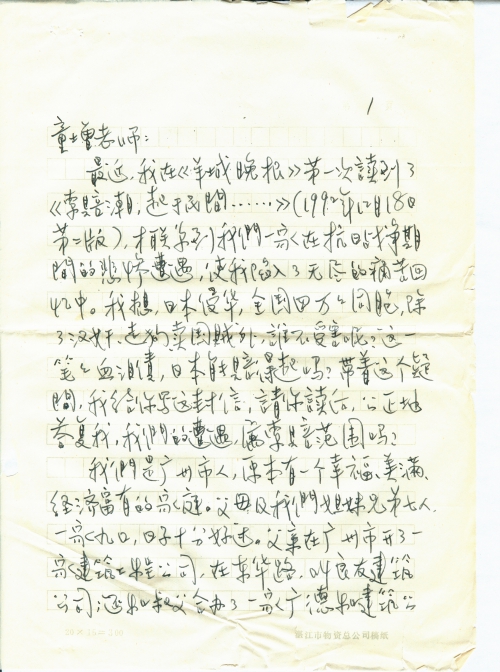 1
童增老师：
最近，我在《羊城晚报》第一次读到了
《索赔潮，起于民間……》(1992年12月18日
第二版)，才联系到我們一家在抗日战争期
間的悲惨遭遇，使我陷入了无尽的痛苦回
忆中。我想，日本侵华，全国四万万同胞，除
了汉奸、走狗卖国賊外，誰不受害呢？这一
笔笔血泪債，日本能賠得起吗？带着这个疑
問，我给你写这封信，請你读后，公正地
荅复我，我們的遭遇，属索賠范围吗？
我們是广州市人，原本有一个幸福、美满、
经濟富有的家庭。父母及我們姐妹兄弟七人，
一家九口，日子十分好过。父亲在广州市开了一
家建筑工程公司，在东华路，叫良友建筑
公司；还和叔父合办了一家广德和建筑公
湛江市物资总公司稿纸